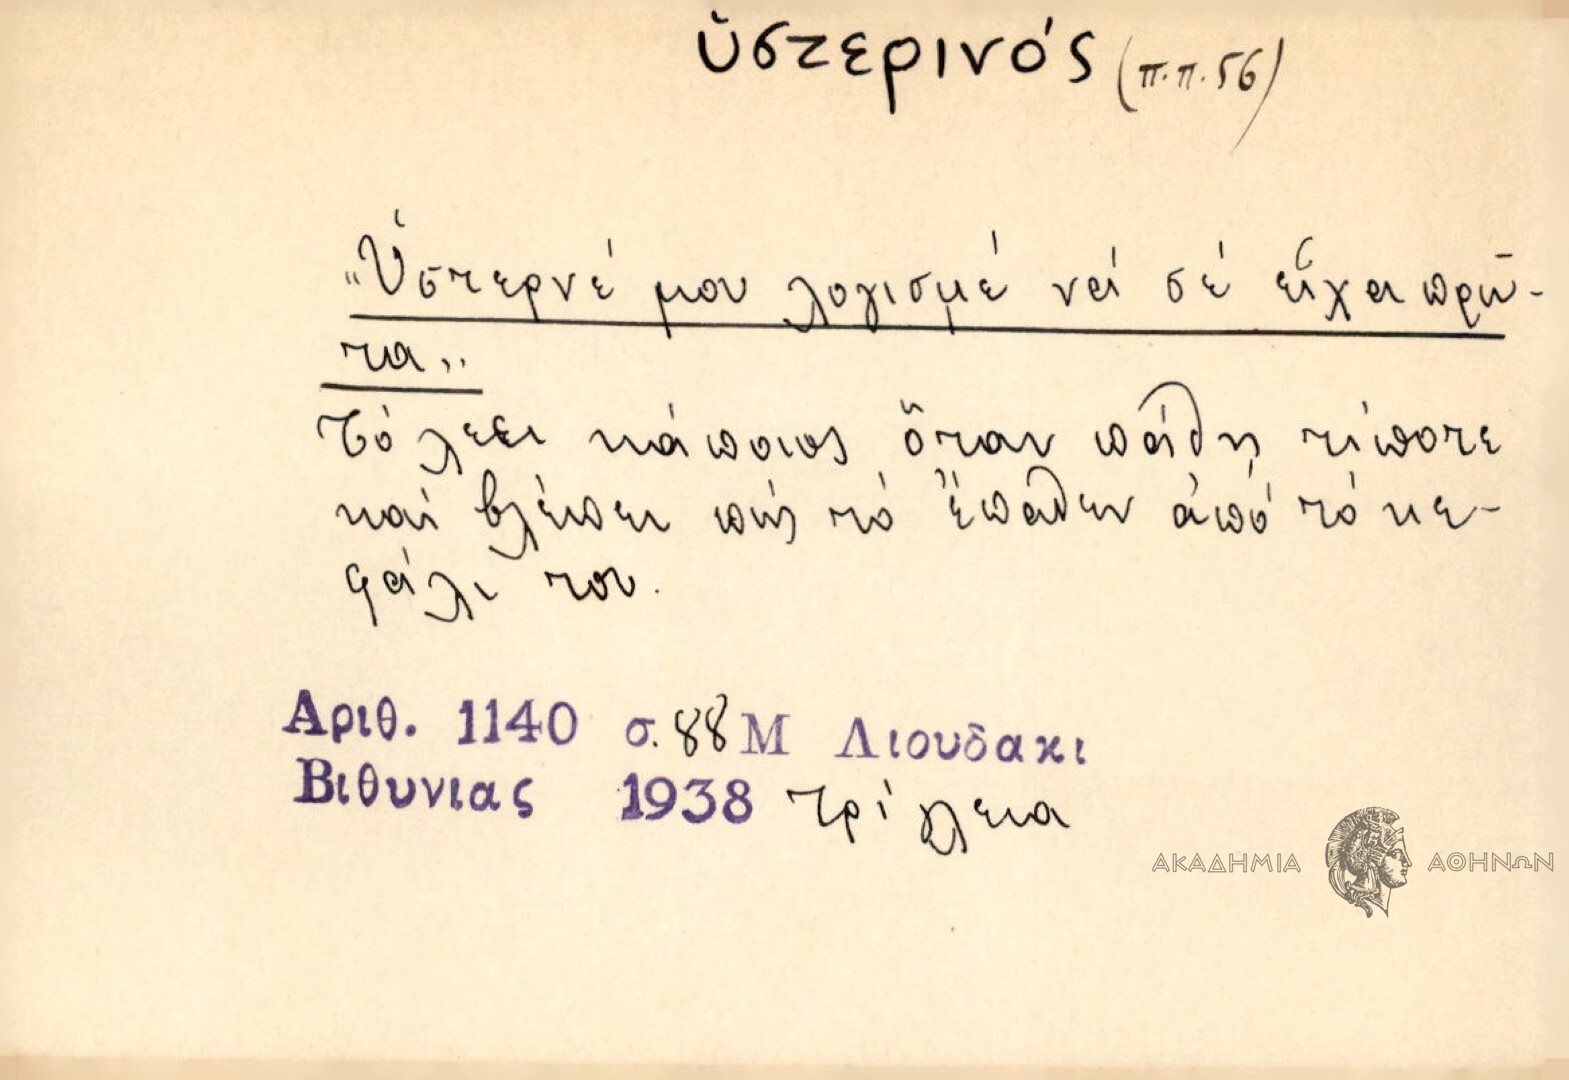 ὑστερινός (π.π. 56)
"Ὑστερνέ μου λογισμέ νά σέ εἶχα πρῶ-
τα„
Τό λέει κάποιος ὅταν πάθη τίποτε
καί βλέπει πώς τό ἔπαθεν ἀπό τό κε-
φάλι του.
Αριθ. 1140 σ. 88 Μ Λιουδακι
Βιθυνιας 1938 Τρίγλεια
ΑΚΑΔΗΜΙΑ ΑΘΗΝΩΝ